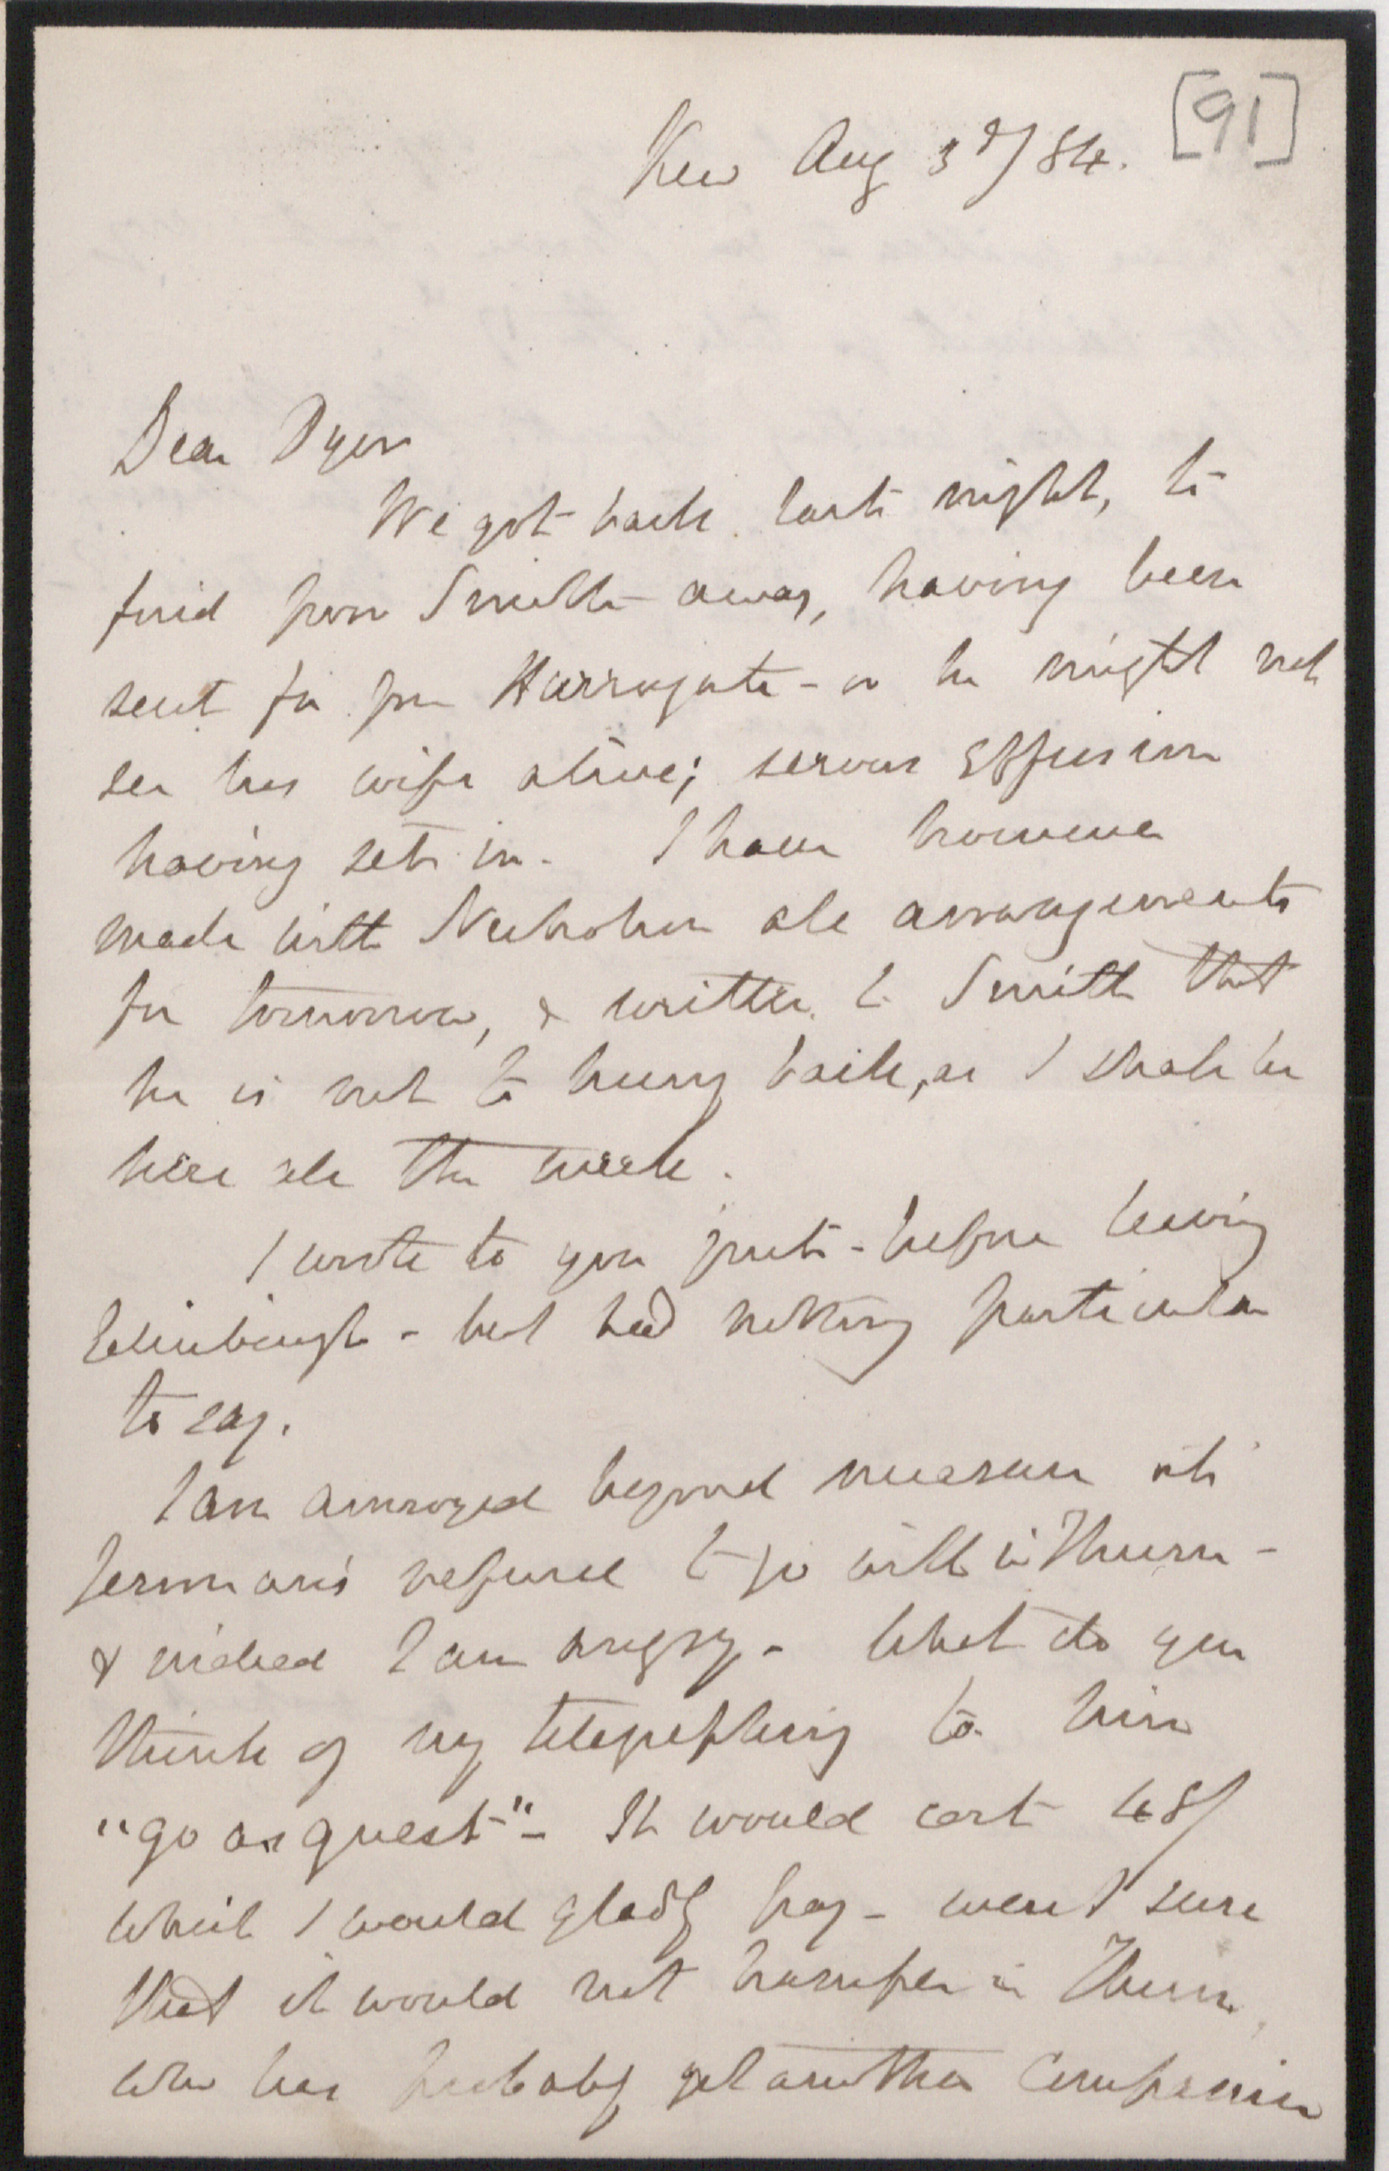 [91]
Kew Aug 3d/84.
Dear Dyer
We got back last night, to
find poor Smith away, having been
sent for from Harrogate - or he might not
see his wife alive; serous effusion
having set in. I have however
made with Nicholson all arrangements
for tomorrow, & written to Smith that
he is not to hurry back, as I shall be
here all the week.
I wrote to you just before leaving
Edinburgh - but had nothing particular
to say.
I am annoyed beyond measure at
Jenman's refusal to go with im Thurn -
& indeed I am angry - What do you
think of my telegraphing to him
"go as guest" - It would cost 48/
which I would gladly pay - were I sure
that it would not hamper im Thurn,
who has probably got another companion